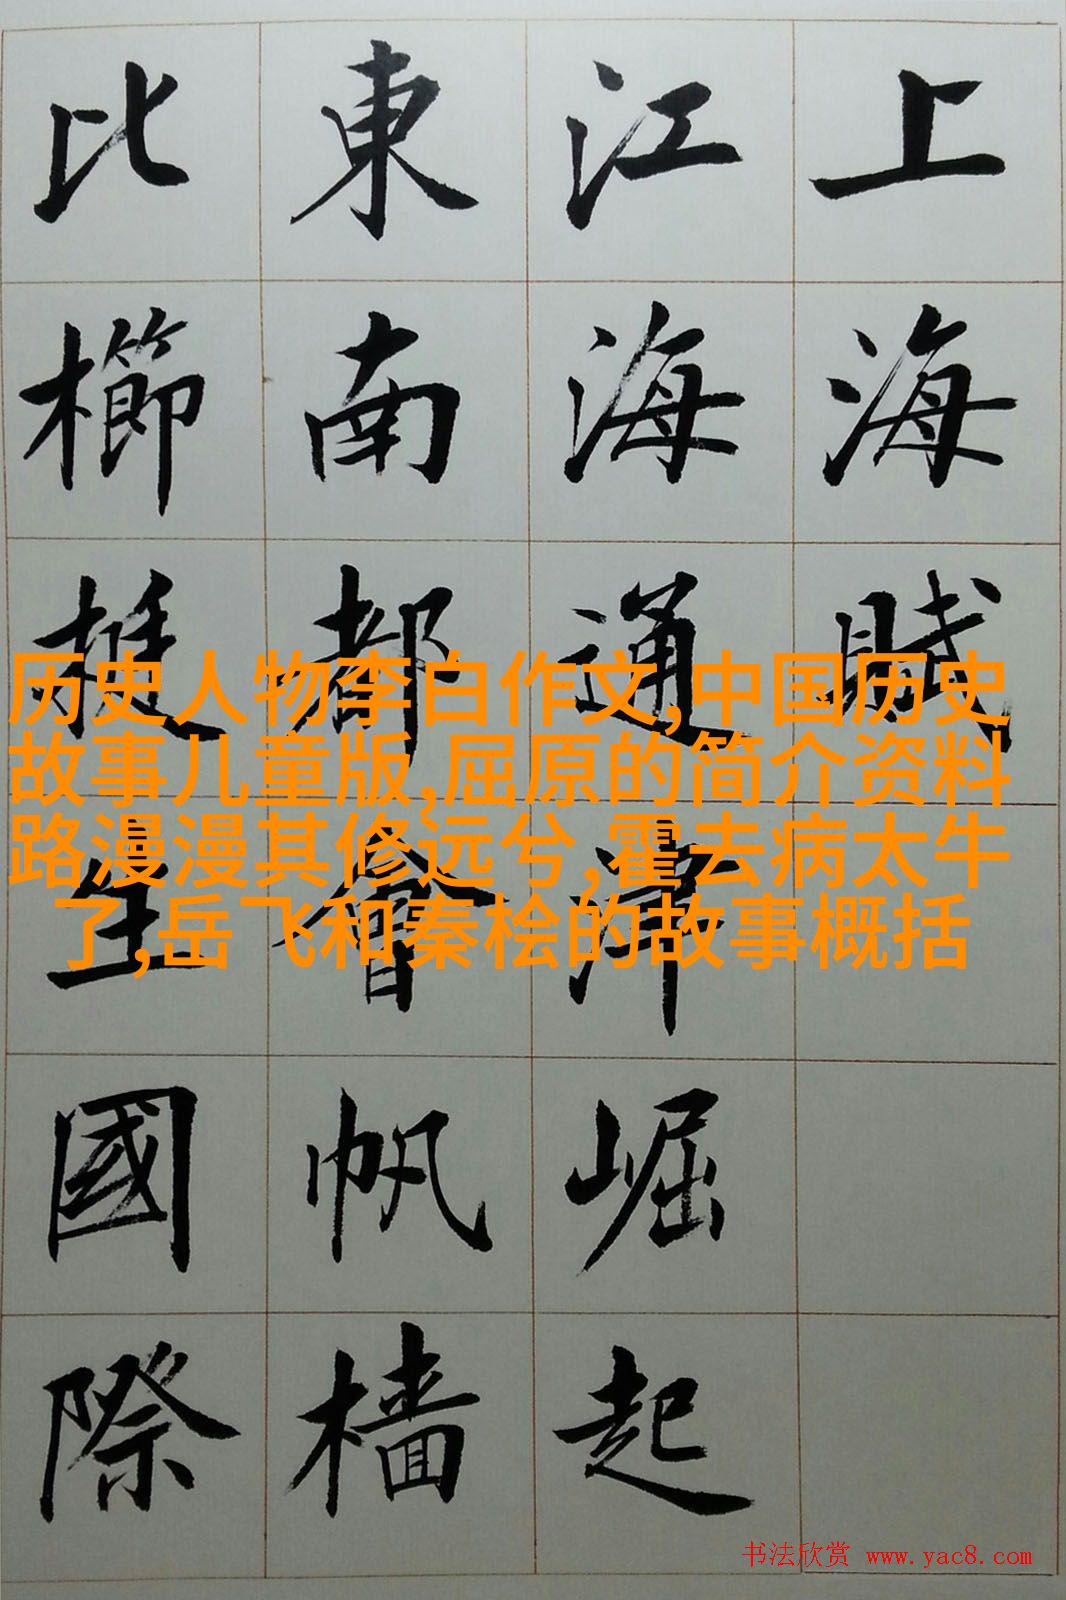 上海賦
江海通津崛起
東南都會帆檣
比櫛挺生國際
历史人物李白作文,中国历史
故事儿童版,屈原的简介资料
路漫漫其修远兮,霍去病太牛
了,岳飞和秦桧的故事概括
书法欣赏 www.yac8.com